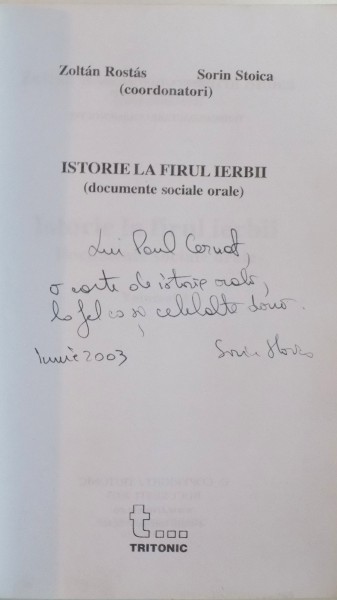 Zoltán Rostás Sorin Stoica
(coordonatori)
ISTORIE LA FIRUL IERBII
(documente sociale orale)
Lui Paul Cernat,
o carte de istorie orală,
la fel ca și celelalte două.
Iunie 2003 Sorin Stoica
t...
TRITONIC